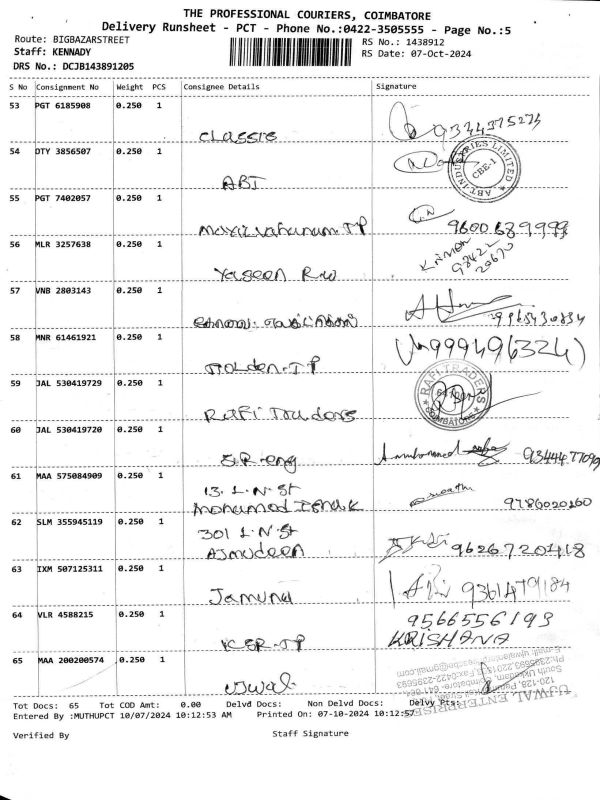 THE PROFESSIONAL COURIERS, COIMBATORE
Delivery Runsheet - PCT - Phone No.:0422-3505555 - Page No.:5
Route: BIGBAZARSTREET RS No.: 1438912
Staff: KENNADY RS Date: 07-Oct-2024
DRS No.: DCJB143891205
S No Consignment No Weight PCS Consignee Details Signature
53 PGT 6185908 0.250 1
classic 9344375274
54 DTY 3856507 0.250 1
ABT ABT INDUSTRIES LIMITED CBE-1
55 PGT 7402057 0.250 1
TP 9600689999
56 MLR 3257638 0.250 1
Yaseen 98422 20670
57 VNB 2803143 0.250 1
9965430834
58 MNR 61461921 0.250 1
Golden TP 9994963241
59 JAL 530419729 0.250 1
Rafi Traders RAFI TRADERS COIMBATORE
60 JAL 530419720 0.250 1
S.R. eng
61 MAA 575084909 0.250 1
13. L.N. St
Mohamed 9786020160
62 SLM 355945119 0.250 1
301 L.N. St
Ajmudeen 9626720418
63 IXM 507125311 0.250 1
Jamuna 9361479184
64 VLR 4588215 0.250 1
9566556193
KSR-TP KRISHANA
65 MAA 200200574 0.250 1
Ujwal UJWAL ENTERPRISES
Tot Docs: 65 Tot COD Amt: 0.00 Delvd Docs: Non Delvd Docs: Delvy Pts:
Entered By :MUTHUPCT 10/07/2024 10:12:53 AM Printed On: 07-10-2024 10:12:57
Verified By Staff Signature